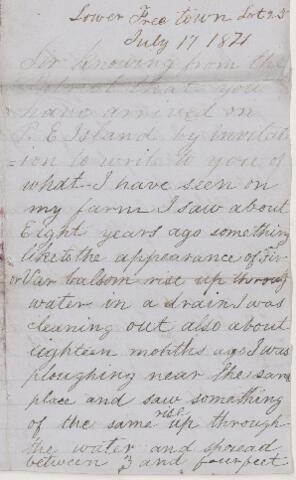 Lower Free town Lot 25
July 17 1871
Sir knowing from the
that you
have arrived on
P. E Island by invitat
=ion to write to you of
what I have seen on
my farm I saw about
Eight years ago something
like to the appearance of Fir
or Var balsom rise up through
water in a drain I was
cleaning out also about
eighteen mohths ago I was
ploughing near the same
place and saw something
of the same rise up through
the water and spread
between 3 and four feet